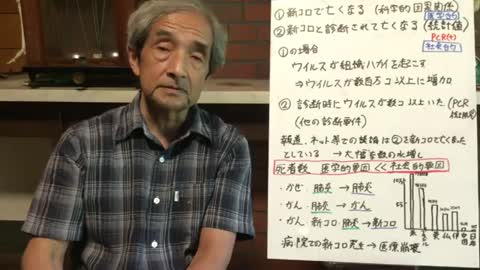 ①新コロで亡くなる（科学的因果関係）
医学的
②新コロと診断されて亡くなる（統計値）
PCR(+)
社会的
①の場合
ウイルスが組織ハカイを起こす
⇒ウイルスが数百万コ以上に増加
② 診断時にウイルスが数コ以上いた（PCR
（他の診断事件）
報道、ネット等での議論は②を新コロで亡くなった
としている → 大幅な数の水増し
死者数 医学的要因 << 社会的要因
・かぜ・肺炎 → 肺炎
・がん・肺炎 → がん
・がん・新コロ・肺炎 → 新コロ
病院での新コロ発生→医療崩壊